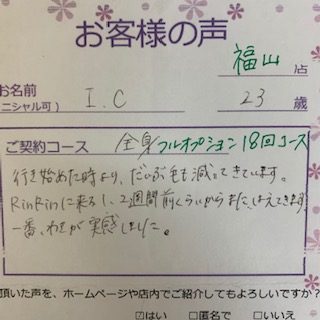 お客様の声
福山店
お名前
ニシャル可) I.C 23歳
ご契約コース 全身フルオプション18回コース
行き始めた時より、だいぶ毛も減ってきています。
RinRinに来る1、2週間前くらいからまた、はえてきます。
一番、わきが実感しました。
頂いた声を、ホームページや店内でご紹介してもよろしいですか?
☑はい □匿名で □いいえ